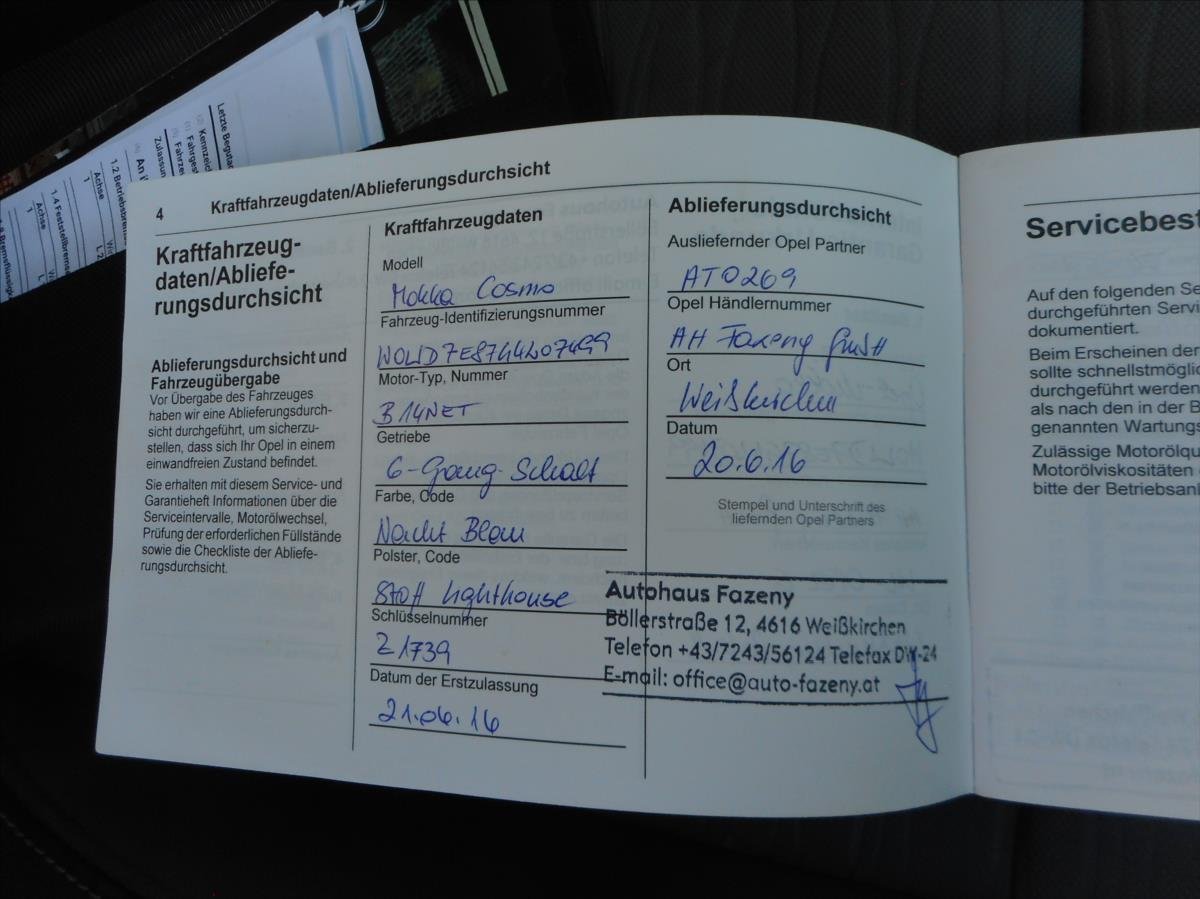 Letzte Begutac
Kennzei
Fahrgest
Fahrze
Zulassun
An
1.2 Betriebsbrems
Achse
1
1.4 Feststellbremse
Achse
1
4 Kraftfahrzeugdaten/Ablieferungsdurchsicht
Kraftfahrzeug-
daten/Abliefe-
rungsdurchsicht
Ablieferungsdurchsicht und
Fahrzeugübergabe
Vor Übergabe des Fahrzeuges
haben wir eine Ablieferungsdurch-
sicht durchgeführt, um sicherzu-
stellen, dass sich Ihr Opel in einem
einwandfreien Zustand befindet.
Sie erhalten mit diesem Service- und
Garantieheft Informationen über die
Serviceintervalle, Motorölwechsel,
Prüfung der erforderlichen Füllstände
sowie die Checkliste der Abliefe-
rungsdurchsicht.
Kraftfahrzeugdaten
Modell
Mokka Cosmo
Fahrzeug-Identifizierungsnummer
Motor-Typ, Nummer
B14NET
Getriebe
6-Gang-Schalt
Farbe, Code
Nacht Blau
Polster, Code
Stoff Lighthouse
Schlüsselnummer
Z1739
Datum der Erstzulassung
21.06.16
Ablieferungsdurchsicht
Ausliefernder Opel Partner
AT0269
Opel Händlernummer
AH Fazeny GmbH
Ort
Weißkirchen
Datum
20.6.16
Stempel und Unterschrift des
liefernden Opel Partners
Autohaus Fazeny
Böllerstraße 12, 4616 Weißkirchen
Telefon +43/7243/56124 Telefax DW-24
E-mail: office@auto-fazeny.at
Servicebest
Auf den folgenden Se
durchgeführten Servi
dokumentiert.
Beim Erscheinen der
sollte schnellstmöglic
durchgeführt werden
als nach den in der B
genannten Wartungs
Zulässige Motorölqu
Motorölviskositäten
bitte der Betriebsanl